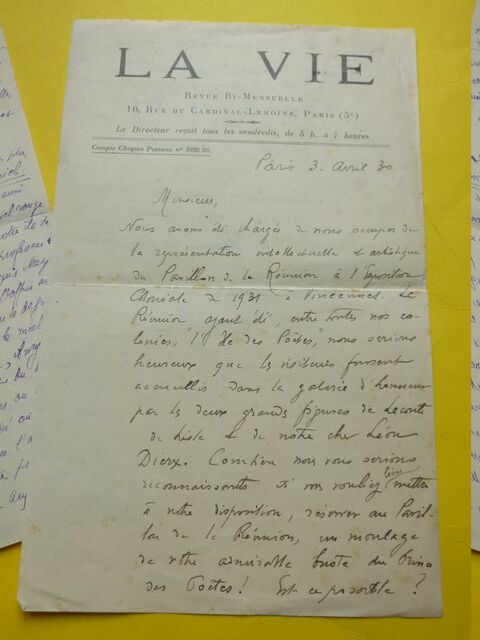 LA VIE
REVUE BI-MENSUELLE
10, RUE DU CARDINAL-LEMOINE, PARIS (5e)
Le Directeur reçoit tous les vendredis, de 5 h. à 7 heures
Compte Chèques Postaux n° 1026.93.
Paris 3 Avril 30
Monsieur,
Nous avons été chargés de nous occuper de
la représentation intellectuelle et artistique
du Pavillon de la Réunion à l'Exposition
Coloniale de 1931 à Vincennes. La
Réunion ayant été, entre toutes nos co-
lonies, "l'Ile des Poëtes", nous serions
heureux que les visiteurs fussent
accueillis dans la galerie d'honneur
par les deux grandes figures de Leconte
de Lisle et de notre cher Léon
Dierx. Combien nous vous serions
reconnaissants si vous vouliez bien mettre
à notre disposition, réserver au Pavil-
lon de la Réunion, un moulage
de votre admirable buste du Prince
des Poëtes ! Est-ce possible ?